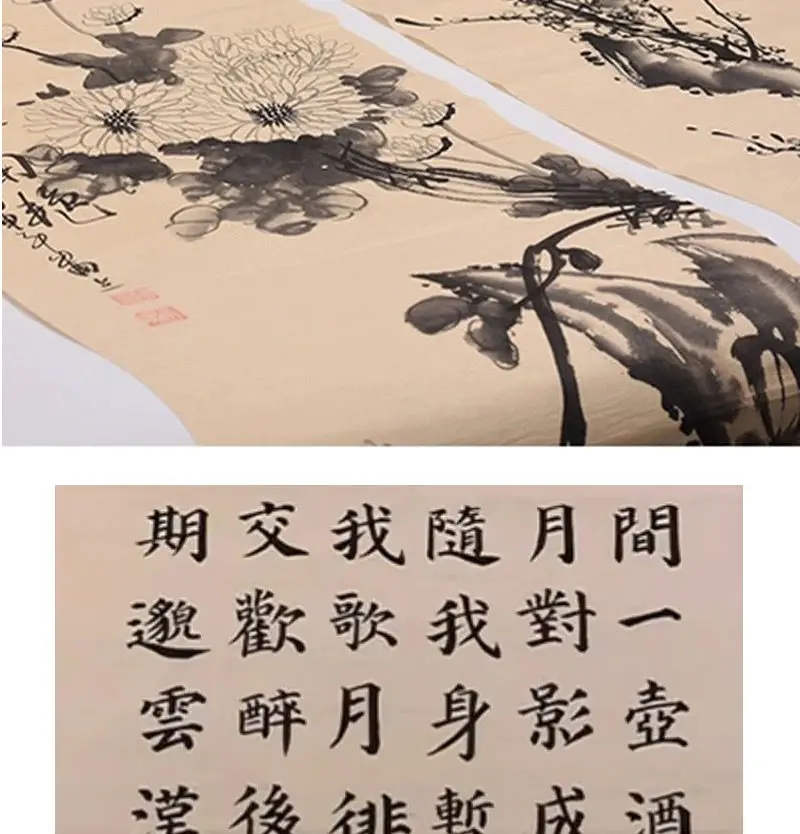 間一壺酒
月對影成
隨我身暫
我歌月徘
交歡醉後
期邈雲漢